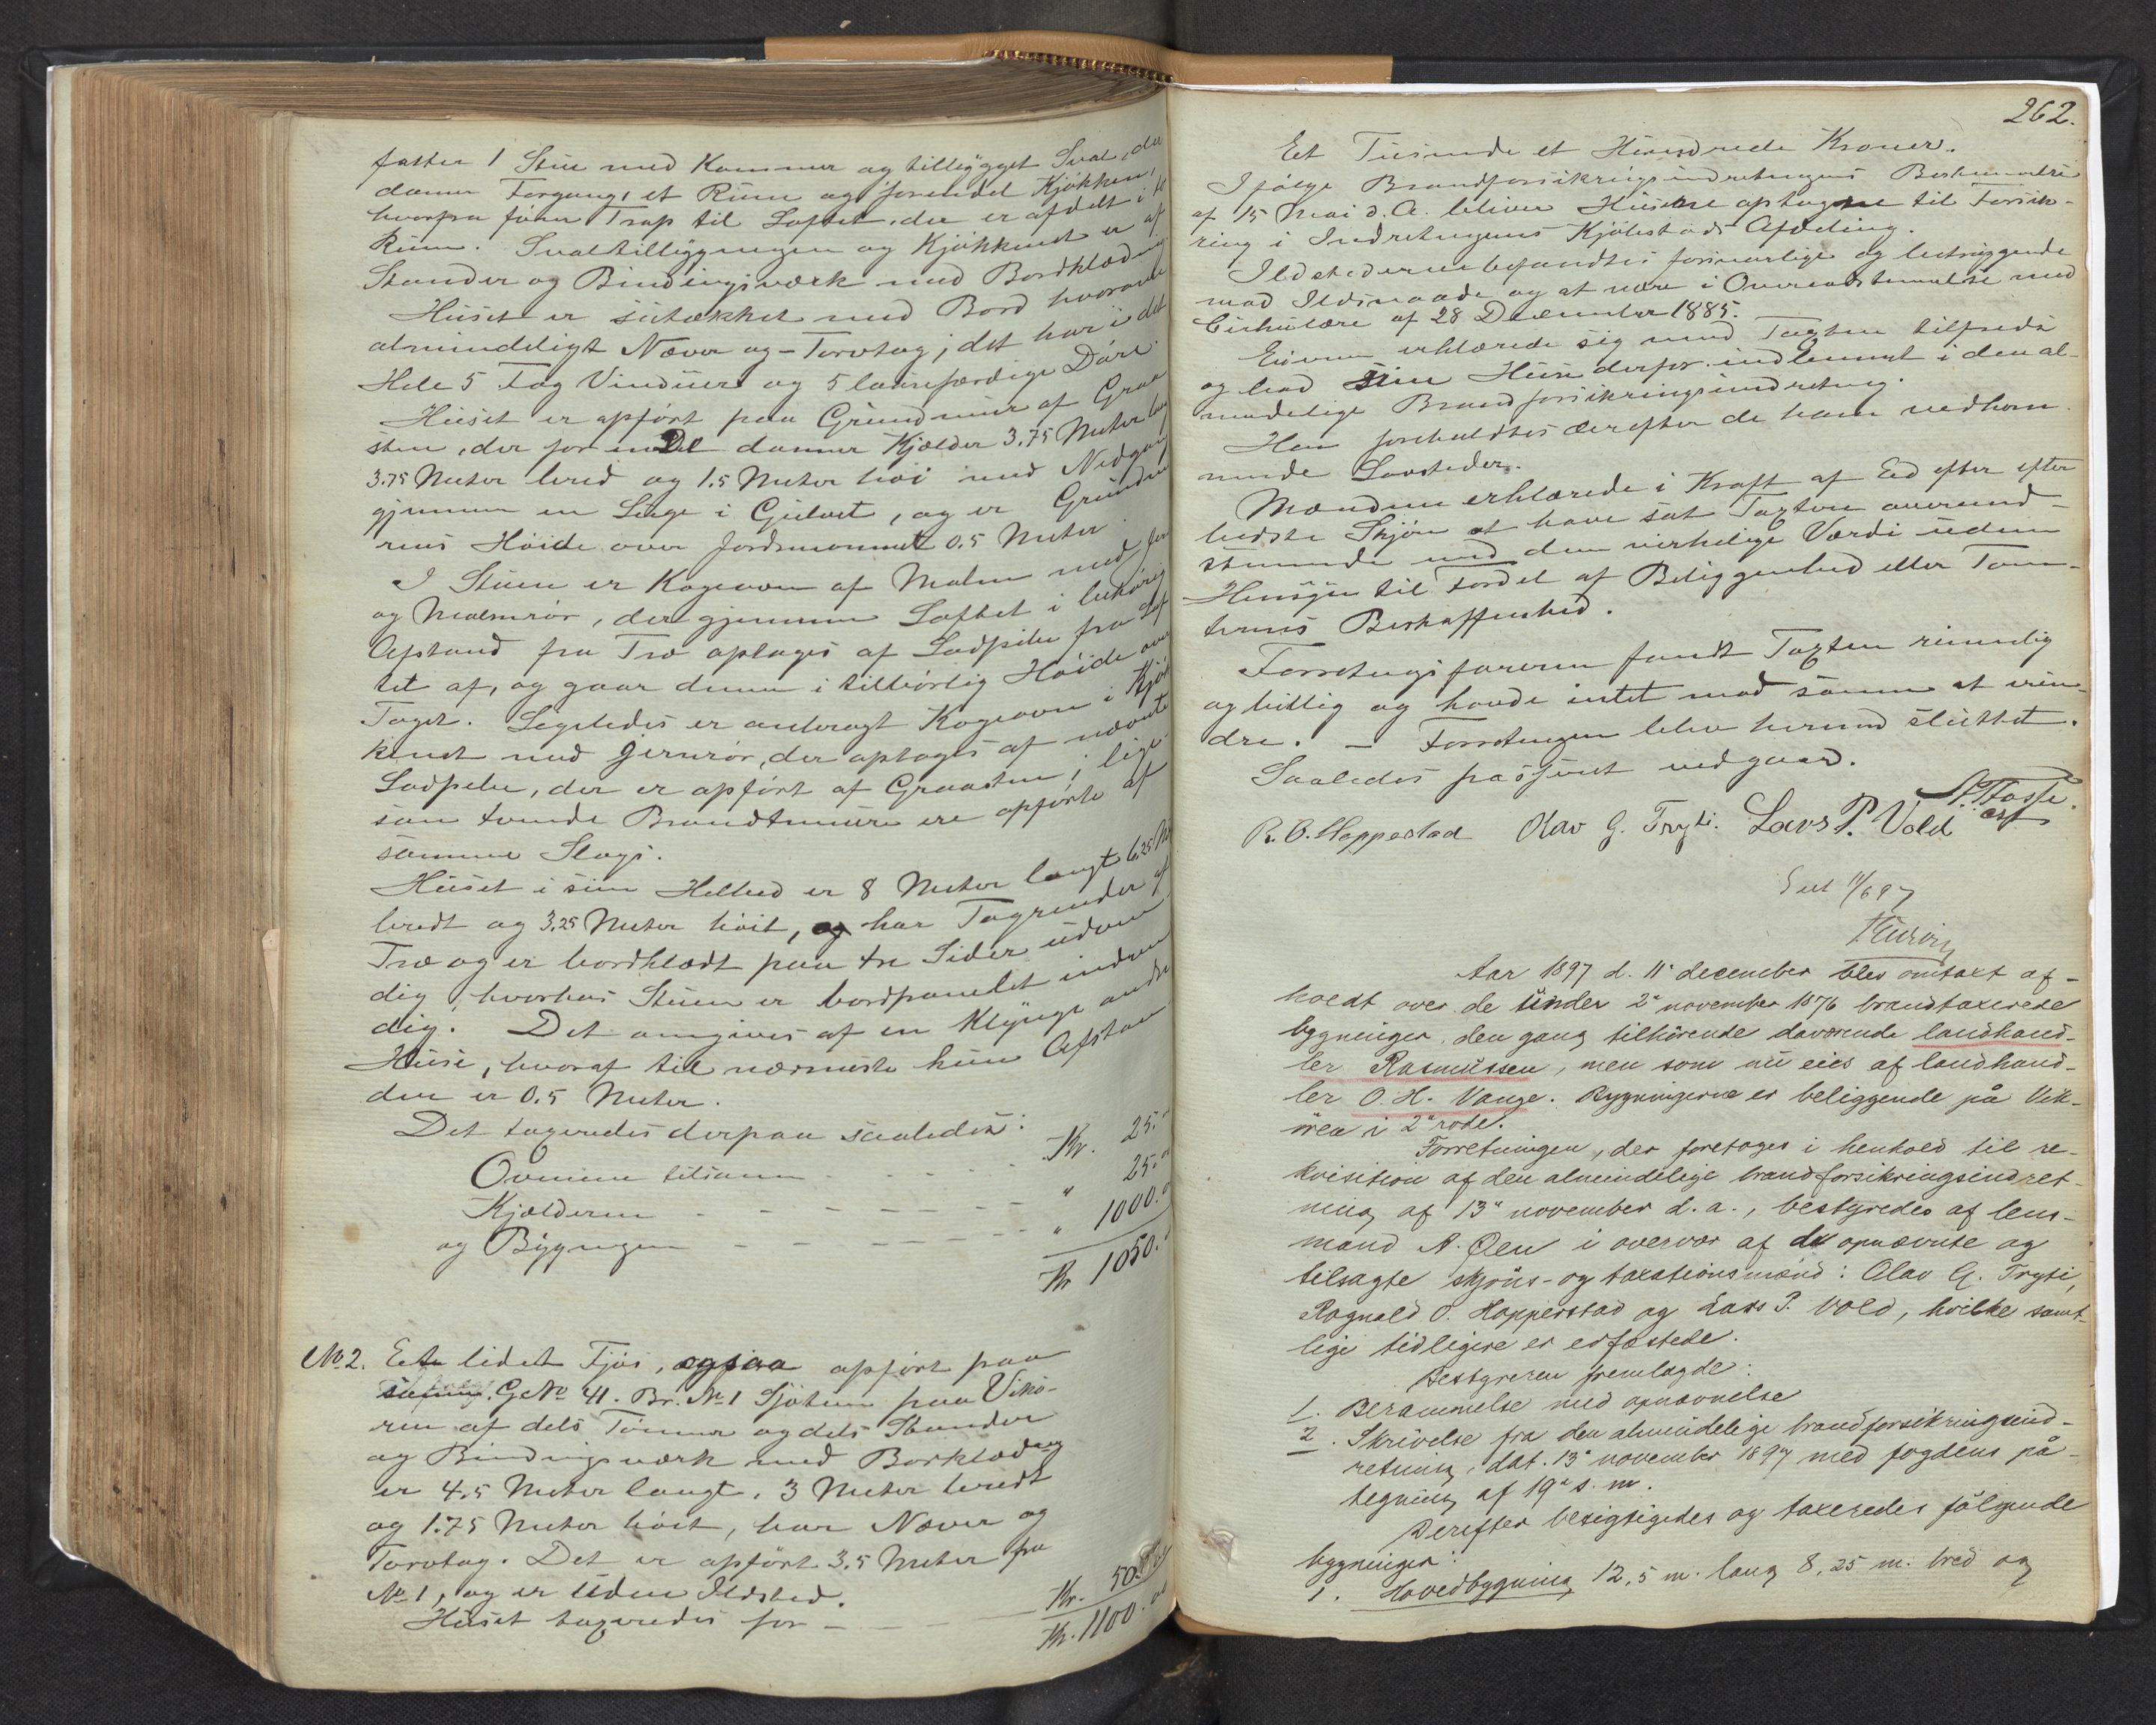 fatter 1 Stue med Kammer og tilbygget Sval, der
danner Forgang, et Rum og forendel Kjøkken,
hvorfra fører Trap til Loftet, der er afdelt i
Rum. Svaltilbygningen og Kjøkkenet er af
Stander og Bindingsværk med Bordklædning
Huset er sutækket med Bord hvorover
almindeligt Næver og Torvtag; det har i det
Hele 5 Fag Vinduer og 5 laasefærdige Døre.
Huset er opført paa Grundmur af Graa
sten, der for en Del danner Kjælder 3.75 Meter lang
3.75 Meter bred og 1.5 Meter høi med Nedgang
gjennem en Luge i Gulvet, og er Grundmu
rens Høide over Jordsmonnet 0.5 Meter.
I Stuen er Kogeovn af Malm med Jern
og Malmrør, der gjennem Loftet i behørig
Afstand fra Træ optages af Sodpibe fra Lof
tet af, og gaar denne i tilbørlig Høide over
Taget. Ligeledes er anbragt Kogeovn i Kjøk
kenet med Jernrør, der optages af nævnte
Sodpibe, der er opført af Graasten; lige-
som tvende Brandtmure ere opførte af
samme Slags.
Huset i sin Helhed er 8 Meter langt 6.25 M
bredt og 3.25 Meter høit, og har Tagrender af
Træ og er bordklædt paa tre Sider udven
dig, hvorhos Stuen er bordpanelet indven
dig. Det omgives af en Klynge andre
Huse, hvoraf til nærmeste kun Afstan
den er 0.5 Meter.
Det taxeredes derpaa saaledes:
Ovnene tilsammen - - - - Kr. 25.
Kjælderen - - - - - - " 25.
og Bygningen - - - - - " 1000.
Kr 1050.
No 2. Et lidet Fjøs, ogsaa opført paa
G No 41. Br. No 1 Sjøtun paa Vikø-
ren af dels Tømmer og dels Stander
og Bindingsværk med Bordklædning
er 4,5 Meter langt, 3 Meter bredt
og 1.75 Meter høit, har Næver og
Torvtag. Det er opført 3.5 Meter fra
No 1, og er uden Ildsted.
Huset taxeredes for - - - - Kr. 50.
Kr. 1100.
262.
Et Tusinde et Hundrede Kroner.
Ifølge Brandforsikringsindretningens Bestemmelse
af 15 Mai d. A. bliver Husene optagne til Forsik-
ring i Indretningens Kjøbstads Afdeling.
Ildstederne befandtes forsvarlige og betryggende
mod Ildsvaade og at være i Overensstemmelse med
Cirkulære af 28 December 1885.
Eieren erklærede sig med Taxten tilfreds
og lod sine Huse derfor indlemmet i den al-
mindelige Brandforsikringsindretning.
Han foreholdtes derefter de ham vedkom
mende Lovsteder.
Mændene erklærede i Kraft af Ed efter efter
bedste Skjøn at have sat Taxten overens-
stemmende med den virkelige Værdi uden
Hensyn til Fordel af Beliggenhed eller Tom-
ternes Beskaffenhed.
Forretningsføreren fandt Taxten rimelig
og billig og havde intet mod samme at erin-
dre. - Forretningen blev hermed sluttet.
Saaledes passeret vedgaaes.
R. O. Hopperstad Olav G. Tryti. Lars P. Vold
Aar 1897 d. 11' december blev omtaxt af-
holdt over de under 2' november 1876 brandtaxerede
bygninger, den gang tilhørende daværende landhand-
ler Rasmussen, men som nu eies af landhand-
ler O. H. Vange. Bygningerne er beliggende på Vik-
øren i 2' rode.
Forretningen, der foretages i henhold til re-
kvisition af den almindelige brandforsikringsindret-
ning af 13' november d. a., bestyredes af lens-
mand A. Øen i overvær af de opnævnte og
tilsagte skjøns- og taxationsmænd: Olav G. Tryti,
Ragnald O. Hopperstad og Lars P. Vold, hvilke samt-
lige tidligere er edfæstede.
Bestyreren fremlagde:
1. Berammelse med opnævnelse
2. Skrivelse fra den almindelige brandforsikringsind-
retning, dat. 13' november 1897 med fogdens på-
tegning af 19' s. m.
Derefter besigtigedes og taxeredes følgende
bygninger:
1. Hovedbygning 12,5 m. lang 8,25 m. bred og